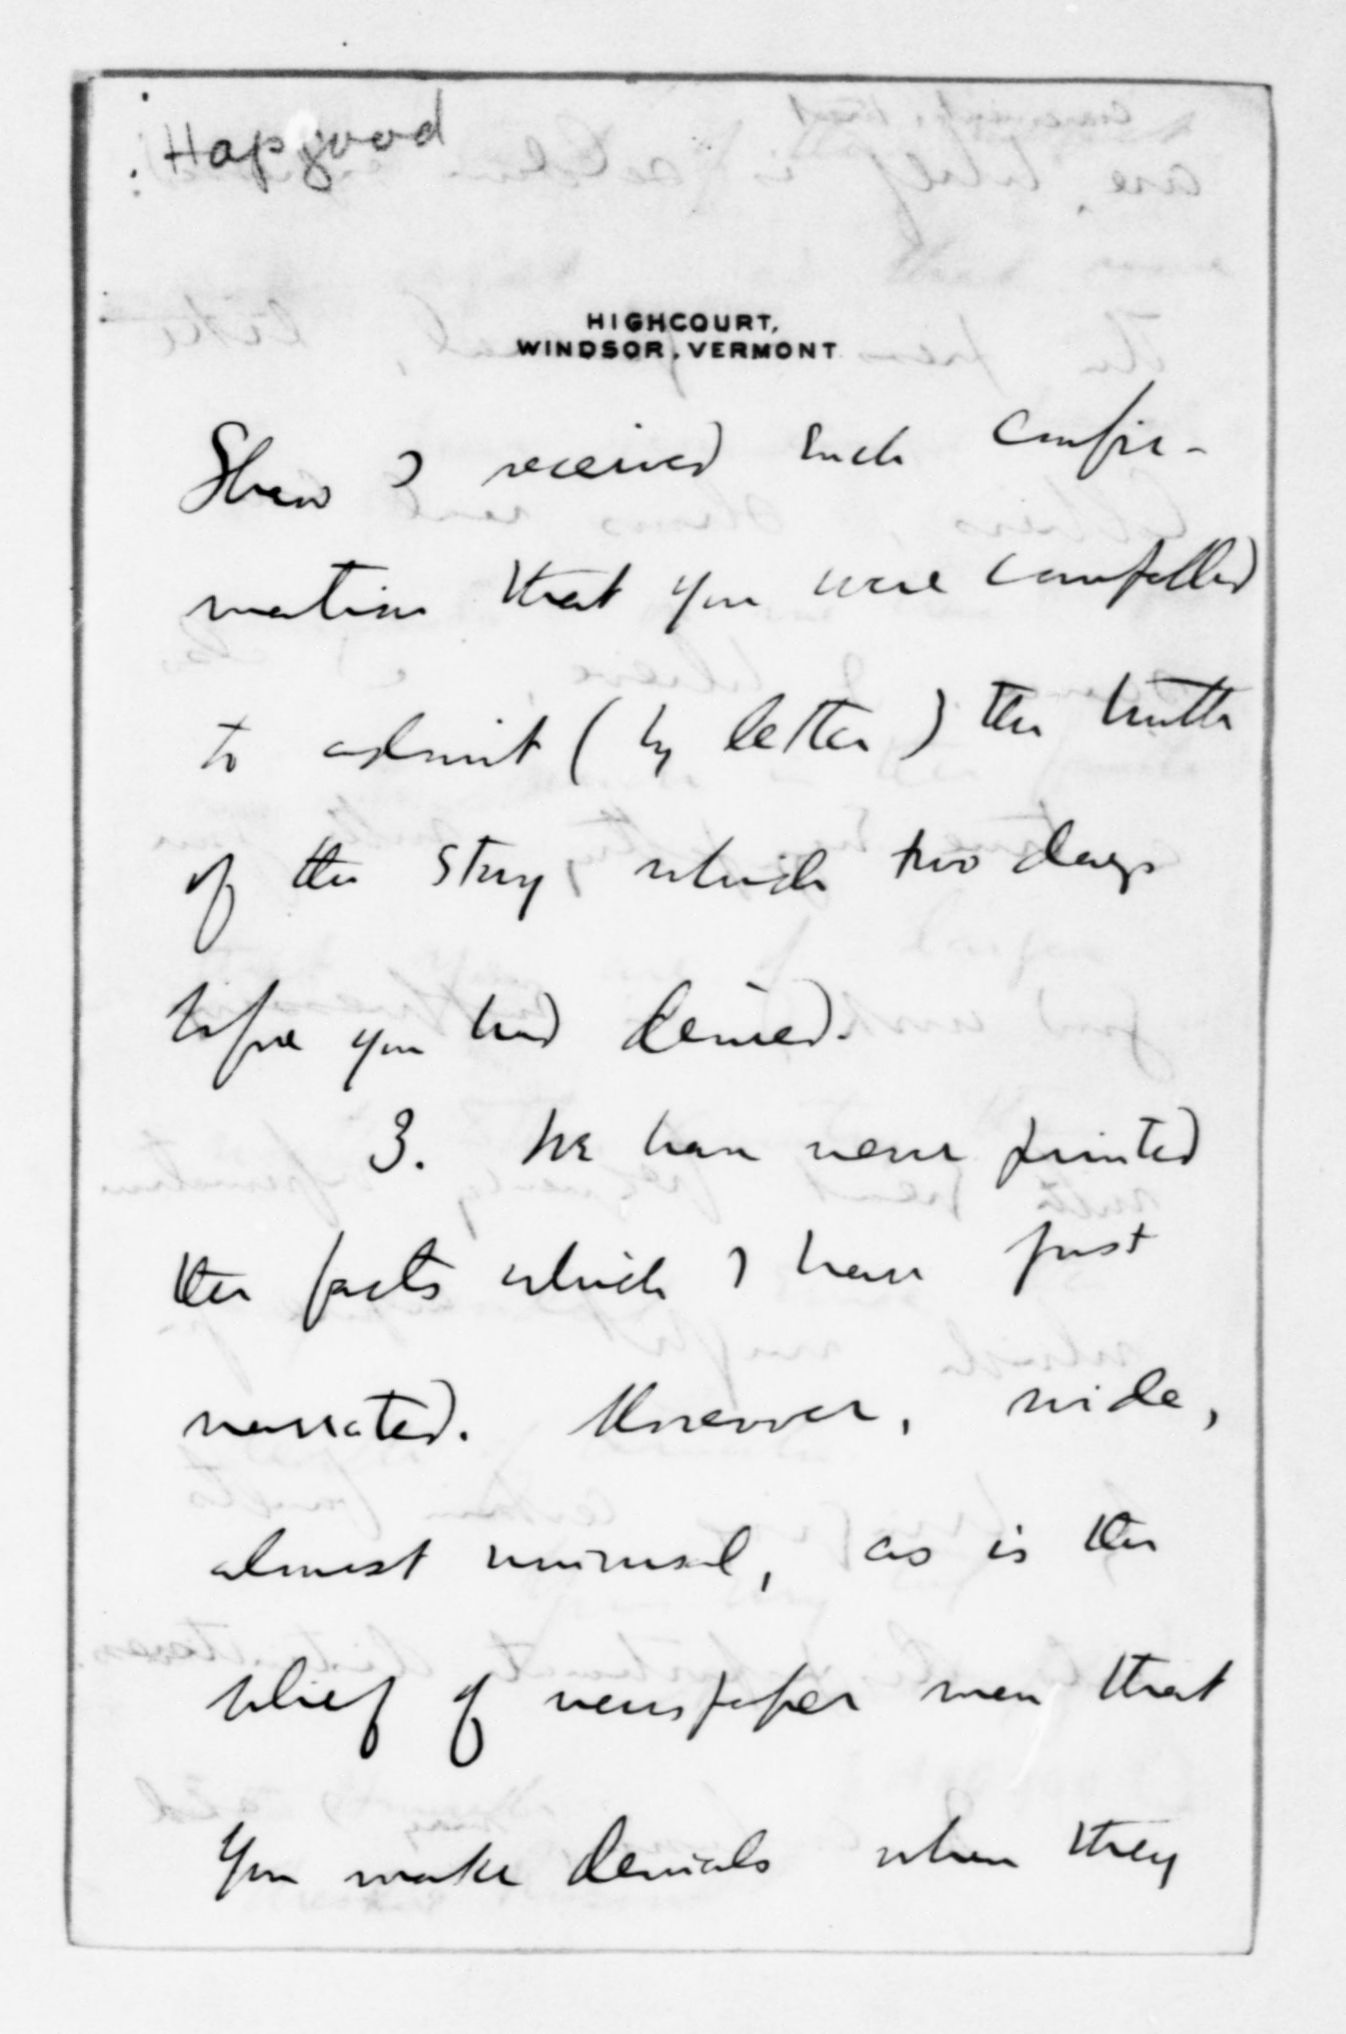 Hapgood
HIGHCOURT,
WINDSOR, VERMONT
Shaw I received such confir-
mation that you were compelled
to admit (by letter) the truth
of the story, which two days
before you had denied.
3. We have never printed
the facts which I have just
narrated. Moreover, wide,
almost universal, as is the
belief of newspaper men that
you make denials when they